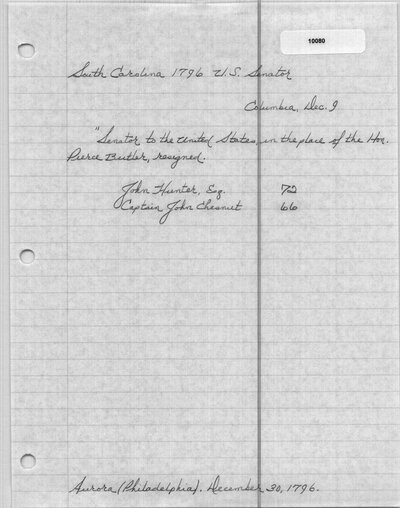 10080
South Carolina 1796 U.S. Senator
Columbia, Dec. 9
"Senator to the United States, in the place of the Hon.
Pierce Butler, resigned.
John Hunter, Esq. 72
Captain John Chesnut 66
Aurora (Philadelphia). December 30, 1796.